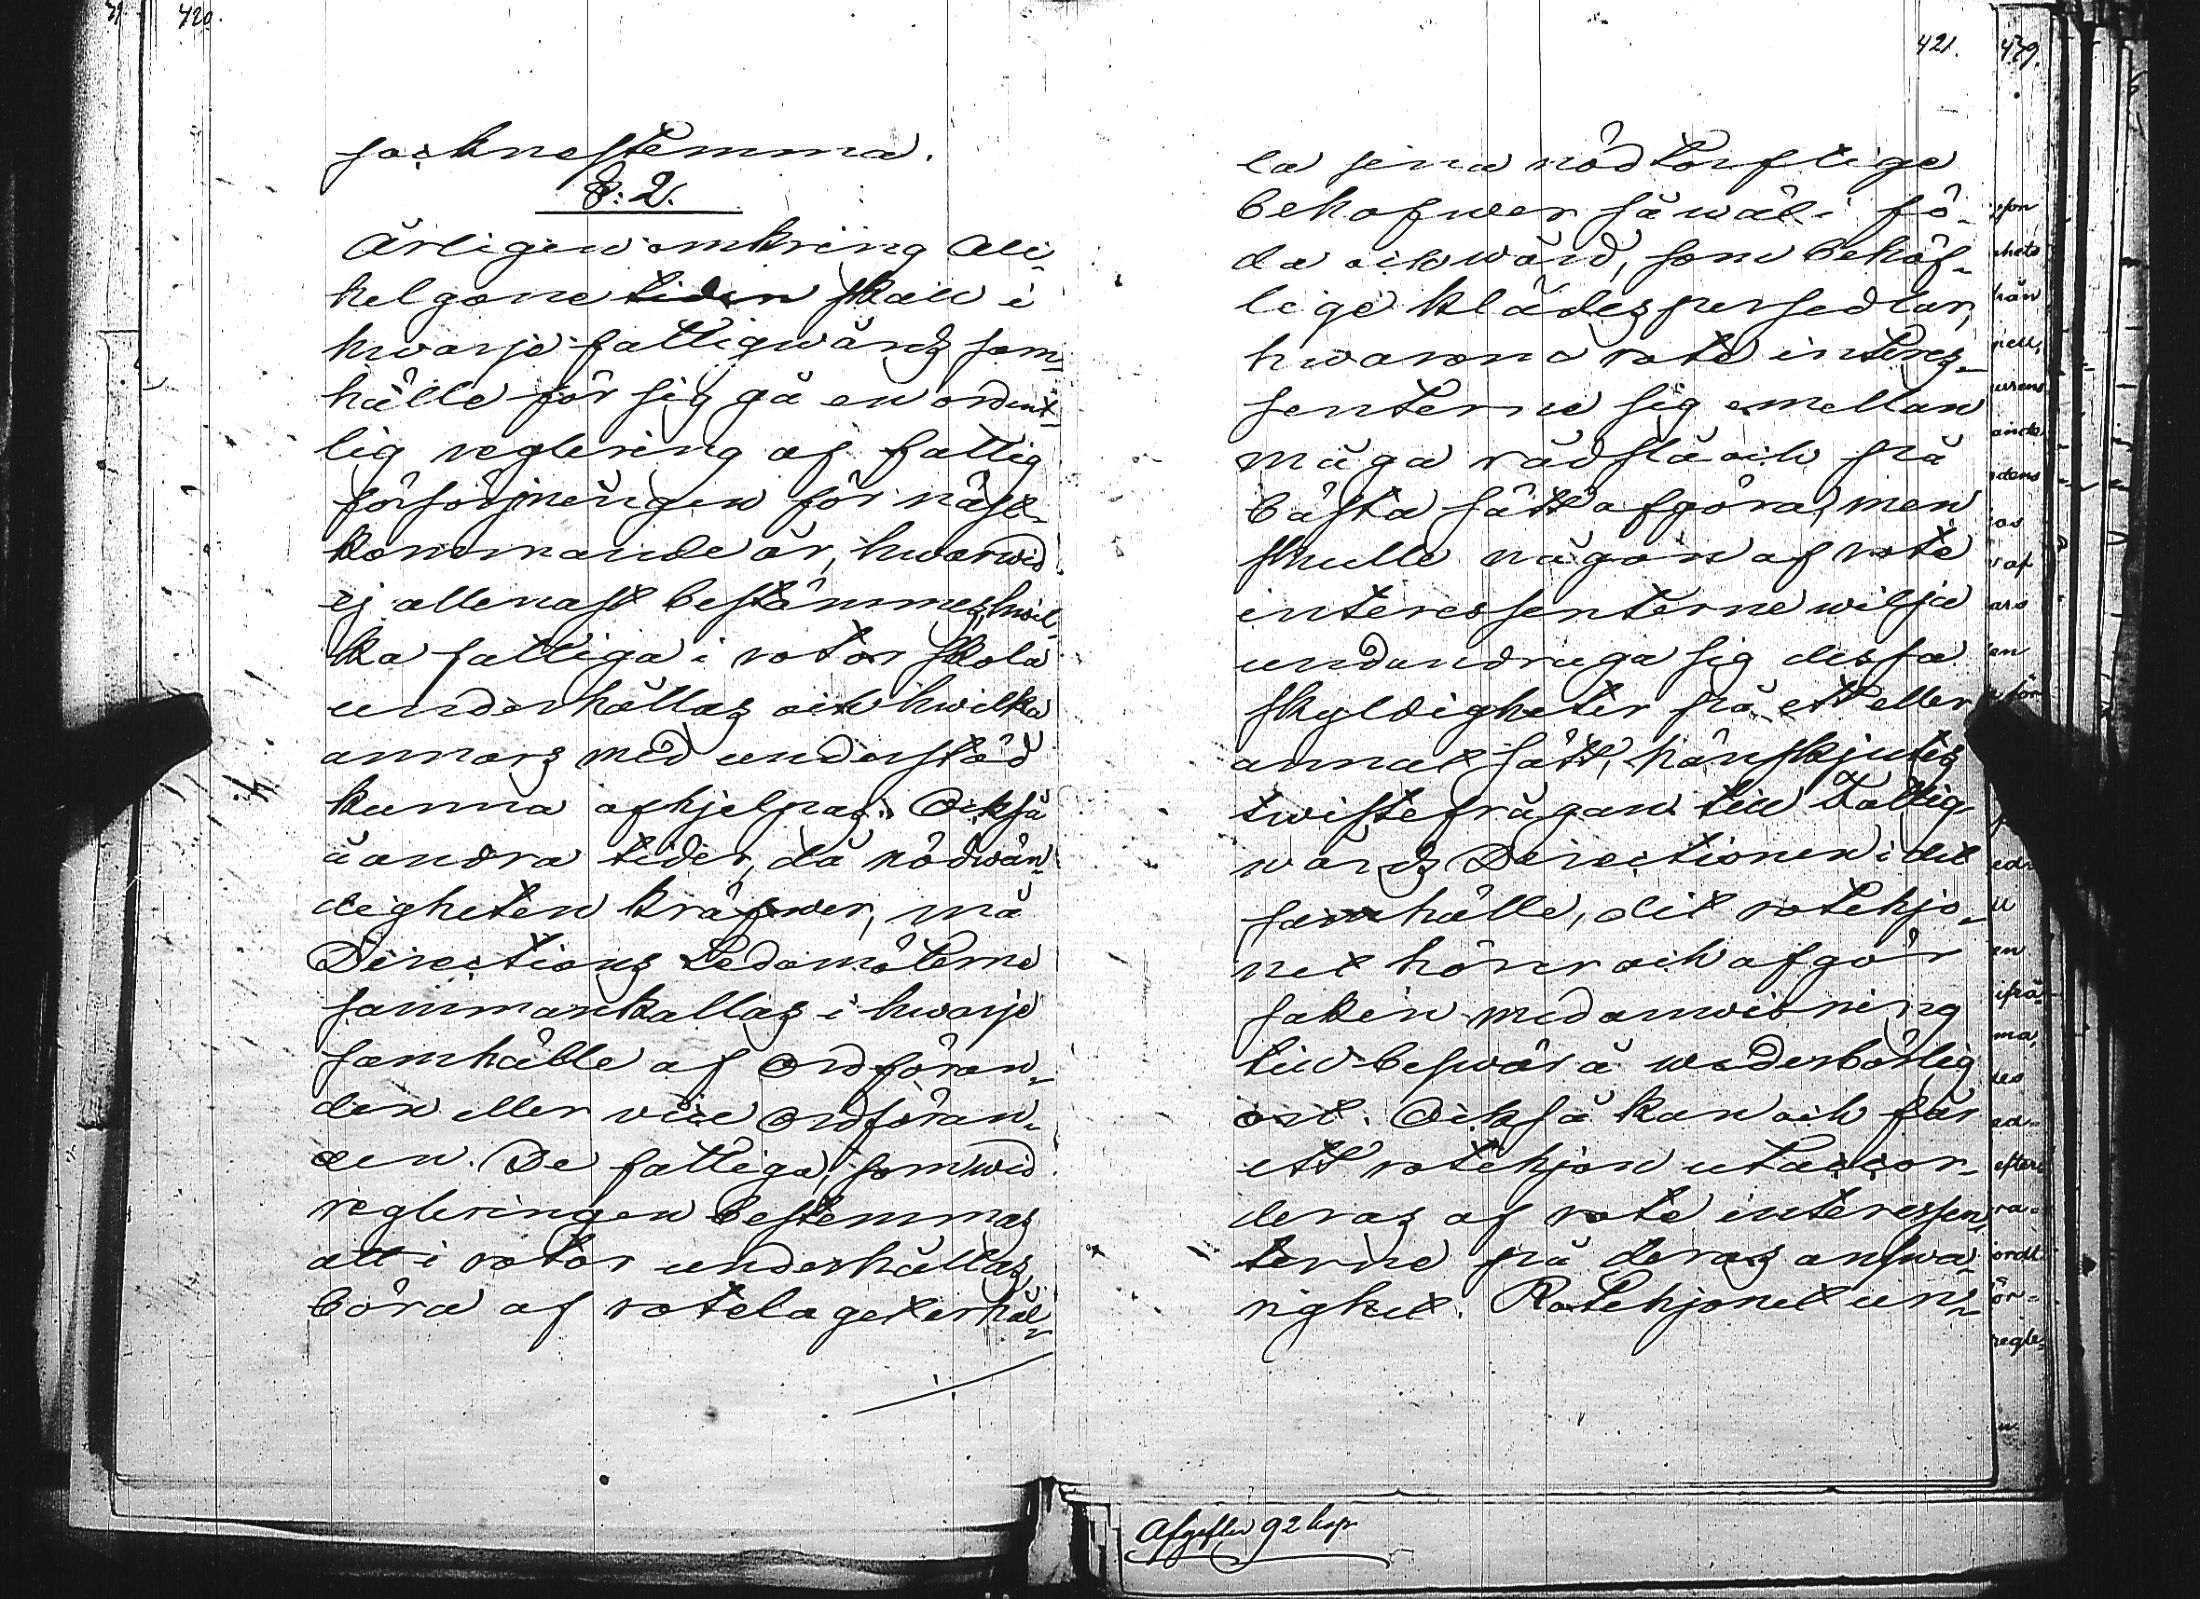 420.
socknestemma.
§: 2.
Årligen omkring All
helgone tiden skall i
hwarje fattigwårds sam-
hälle för sig gå en ordent-
lig reglering af fattig
försörjningen för näst-
kommande år, hwarwid
ej allenast bestämmes, hwil-
ka fattiga i rotor skola
underhållas och hwilka
annars med understöd
kunna afhjelpas. Också
å andra tider, då nödwän-
digheten kräfwer, må
Directions Ledamöterne
sammankallas i hwarje
samhälle af Ordföran-
den eller vice Ordföran-
den. De fattiga, som wid
regleringen bestemmas
att i rotor underhållas
böra af rotelaget erhål-
421.
la sina nödtorftige
behofwer så wäl i fö-
da och wård, som behöf-
lige klädespersedlar,
hwarom rote intres-
senterne sig emellan
måga rådslå och på
bästa sätt afgöra, men
skulle någon af rote
interessenterne wilja
undandraga sig dessa
skyldigheter på ett eller
annat sätt, hänskjutes
twistefrågan till Fattig-
wårds Directionen i det
samhälle, dit rotehjo-
net hörer och afgör
saken med anwisning
till beswär å wederbörlig
ort. Också kan och får
ett rotehjon utaccor-
deras af rote interessen-
terne på deras answa-
righet. Rotehjonet un-
439.
Afgiften 92 kop